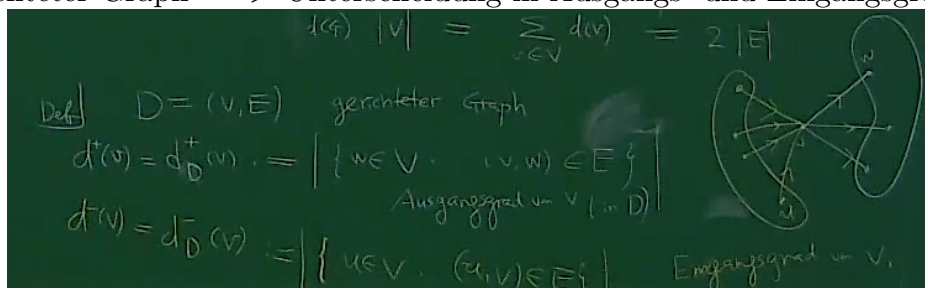 chteter Graph → Unterscheidung in Ausgangs- und Eingangsgra
d(G) |V| = ∑ v∈V d(v) = 2 |E|
Def D = (V, E) gerichteter Graph
d⁺(v) = d⁺_D(v) := | { w∈V : (v, w) ∈ E } |
Ausgangsgrad von v (in D)
d⁻(v) = d⁻_D(v) := | { u∈V : (u, v) ∈ E } | Eingangsgrad von v.
w
v
u